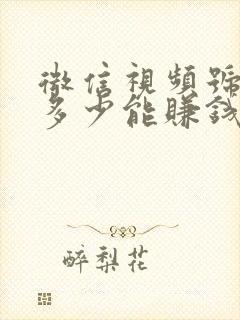 微信視頻號
多少能賺錢
醉梨花